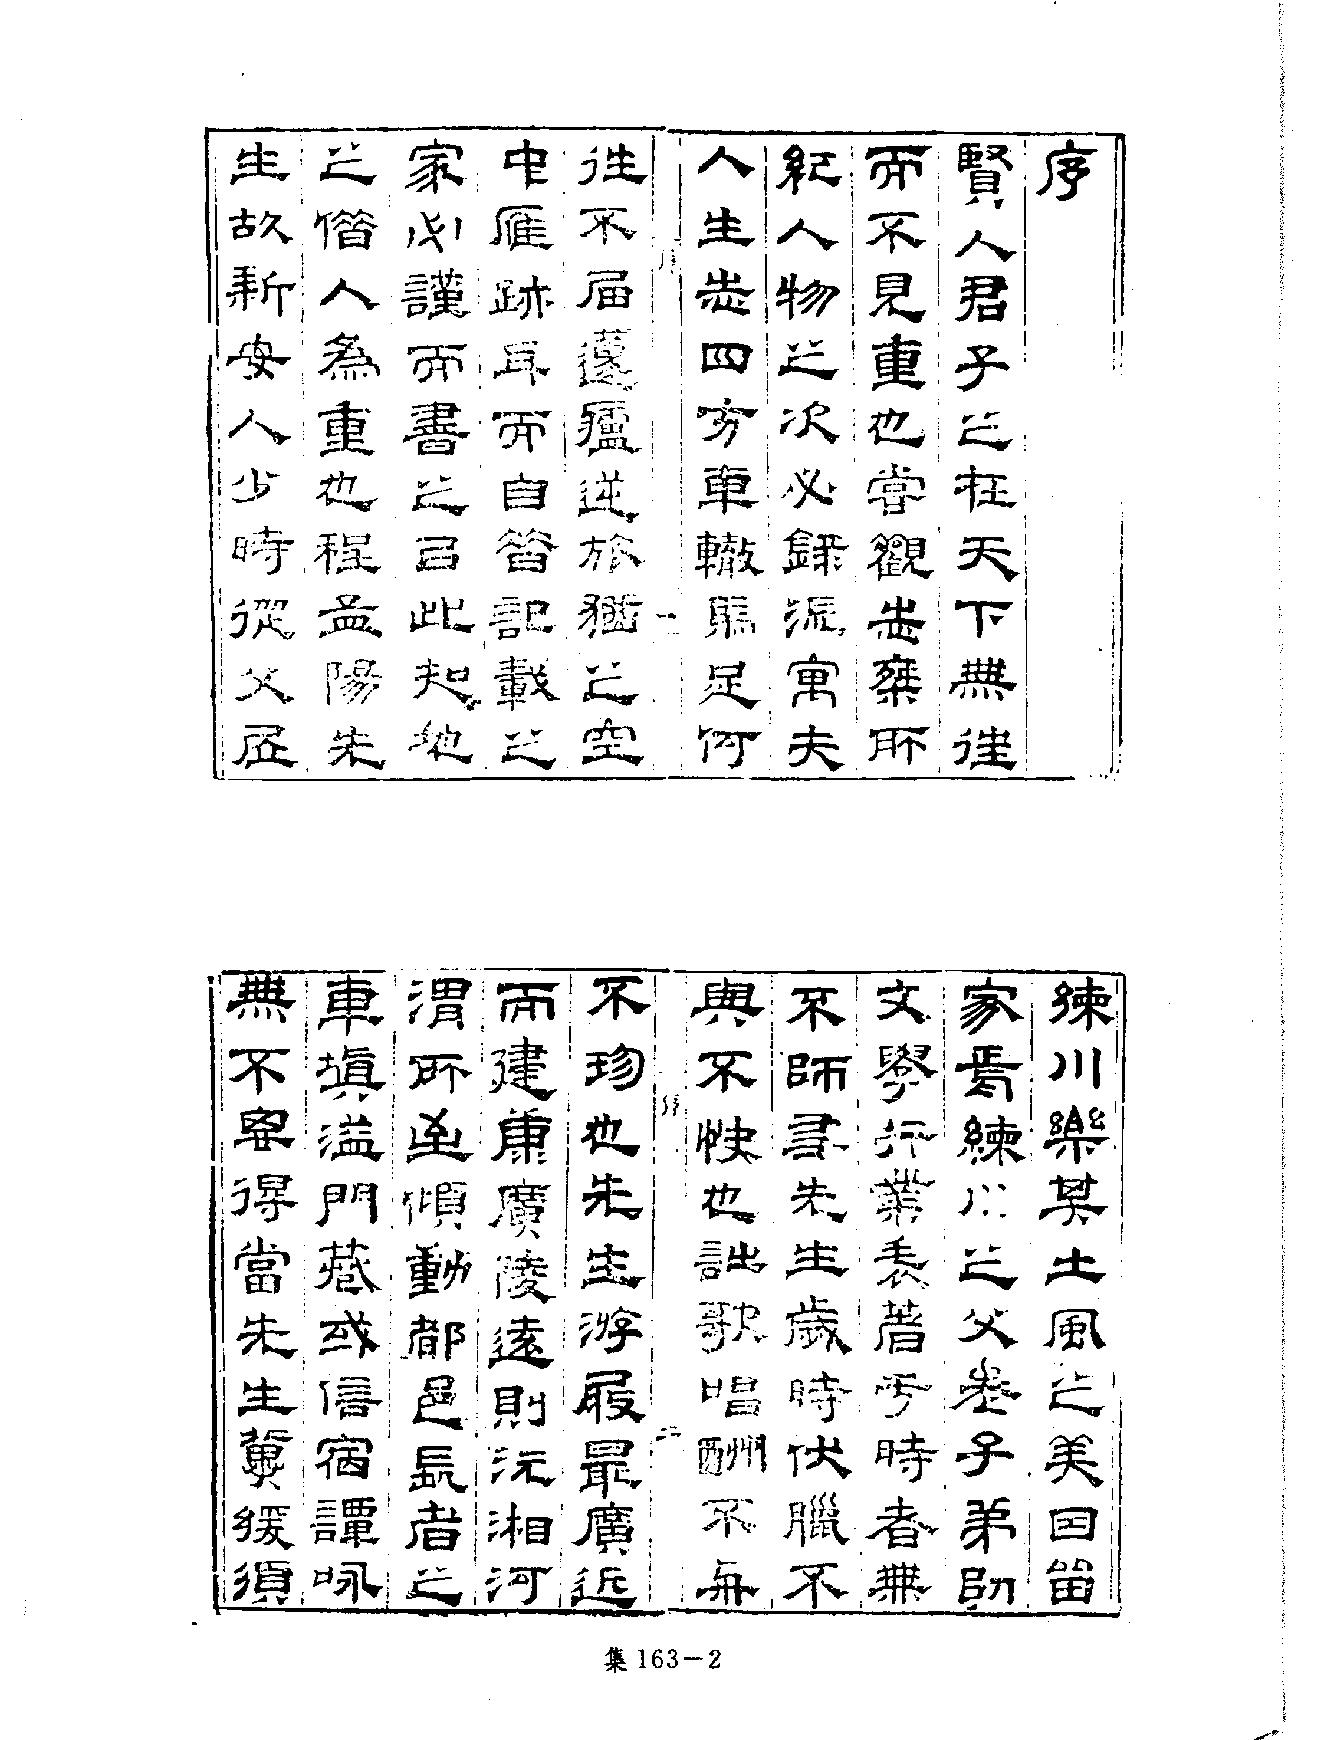 序
賢人君子之在天下無徃
而不見重也嘗觀志乘所
紀人物之次必錄流寓夫
人生志四方車轍馬足何
徃不届蘧廬逆旅猶之空
中雁跡耳而自昔記載之
家必謹而書之㠯此知地
之僭人為重也程孟陽先
生故新安人少時從父居
序
一
練川樂其土風之美因留
家焉練川之父老子弟卽
文學行業表著于時者無
不師事先生歲時伏臘不
與不快也詘歌唱酬不與
不珍也先生游屐最廣近
而建康廣陵遠則沅湘河
渭所至傾動都邑長者之
車填溢門巷或信宿譚咏
無不寍得當先生冀緩須
序
二
集163-2